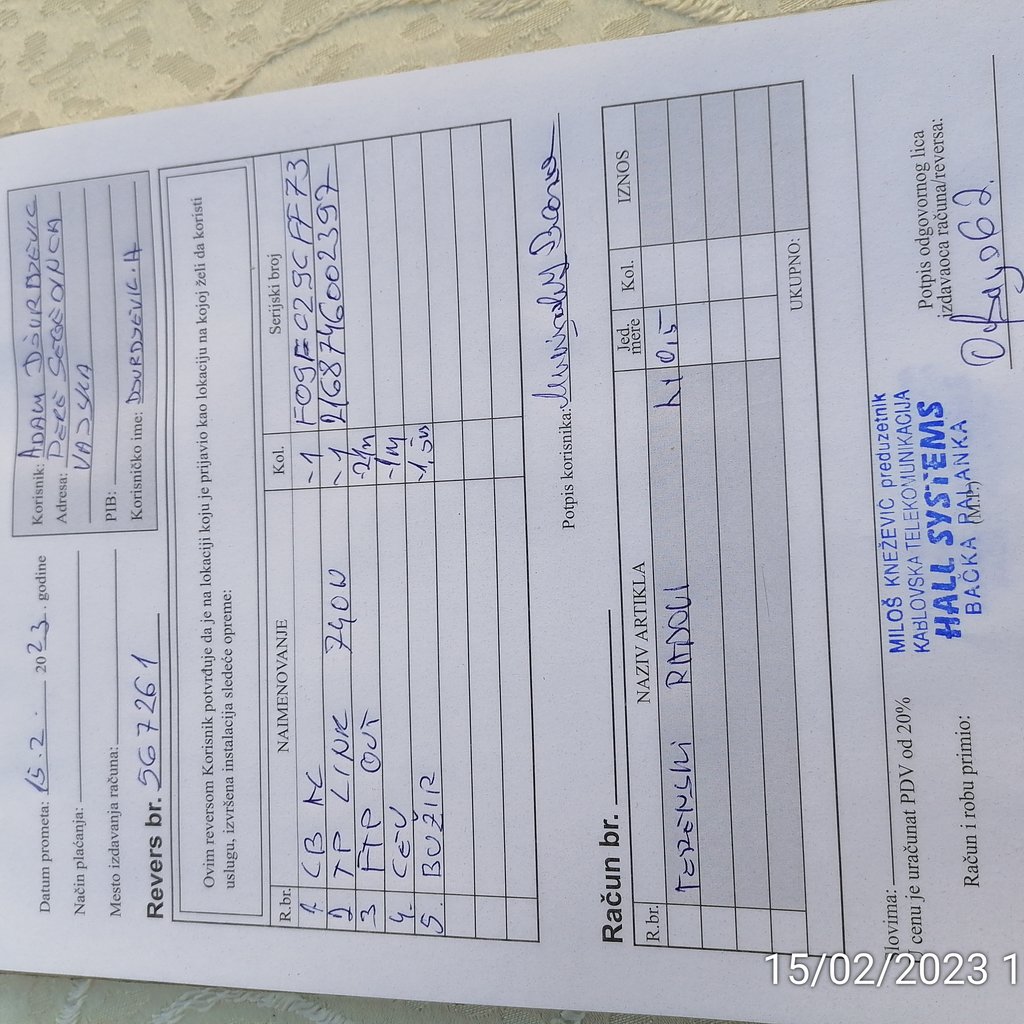 Datum prometa: 15.2. 2023. godine
Način plaćanja:
Mesto izdavanja računa:
Revers br. 567261
Korisnik: ADAM DŽURDZEVIC
Adresa: PERE SEGEDINCA
VAJSKA
PIB:
Korisničko ime: DJURDJEVIC.A
Ovim reversom Korisnik potvrđuje da je na lokaciji koju je prijavio kao lokaciju na kojoj želi da koristi
uslugu, izvršena instalacija sledeće opreme:
R.br. NAIMENOVANJE Kol. Serijski broj
1. CB AC ~1 F09F029CFF73
2 TP LINK 740W ~1 2168746002397
3 FTP OUT
4. CEV ~1M
5. BUŽIR
Potpis korisnika:
Račun br.
R.br. NAZIV ARTIKLA Jed. mere Kol. IZNOS
TERENSKI RADOVI 0,5
UKUPNO:
Slovima:
U cenu je uračunat PDV od 20%
MILOŠ KNEŽEVIĆ preduzetnik
KABLOVSKA TELEKOMUNIKACIJA
HALL SYSTEMS
BAČKA PALANKA
(M.P.)
Račun i robu primio:
Potpis odgovornog lica
izdavaoca računa/reversa:
15/02/2023 1